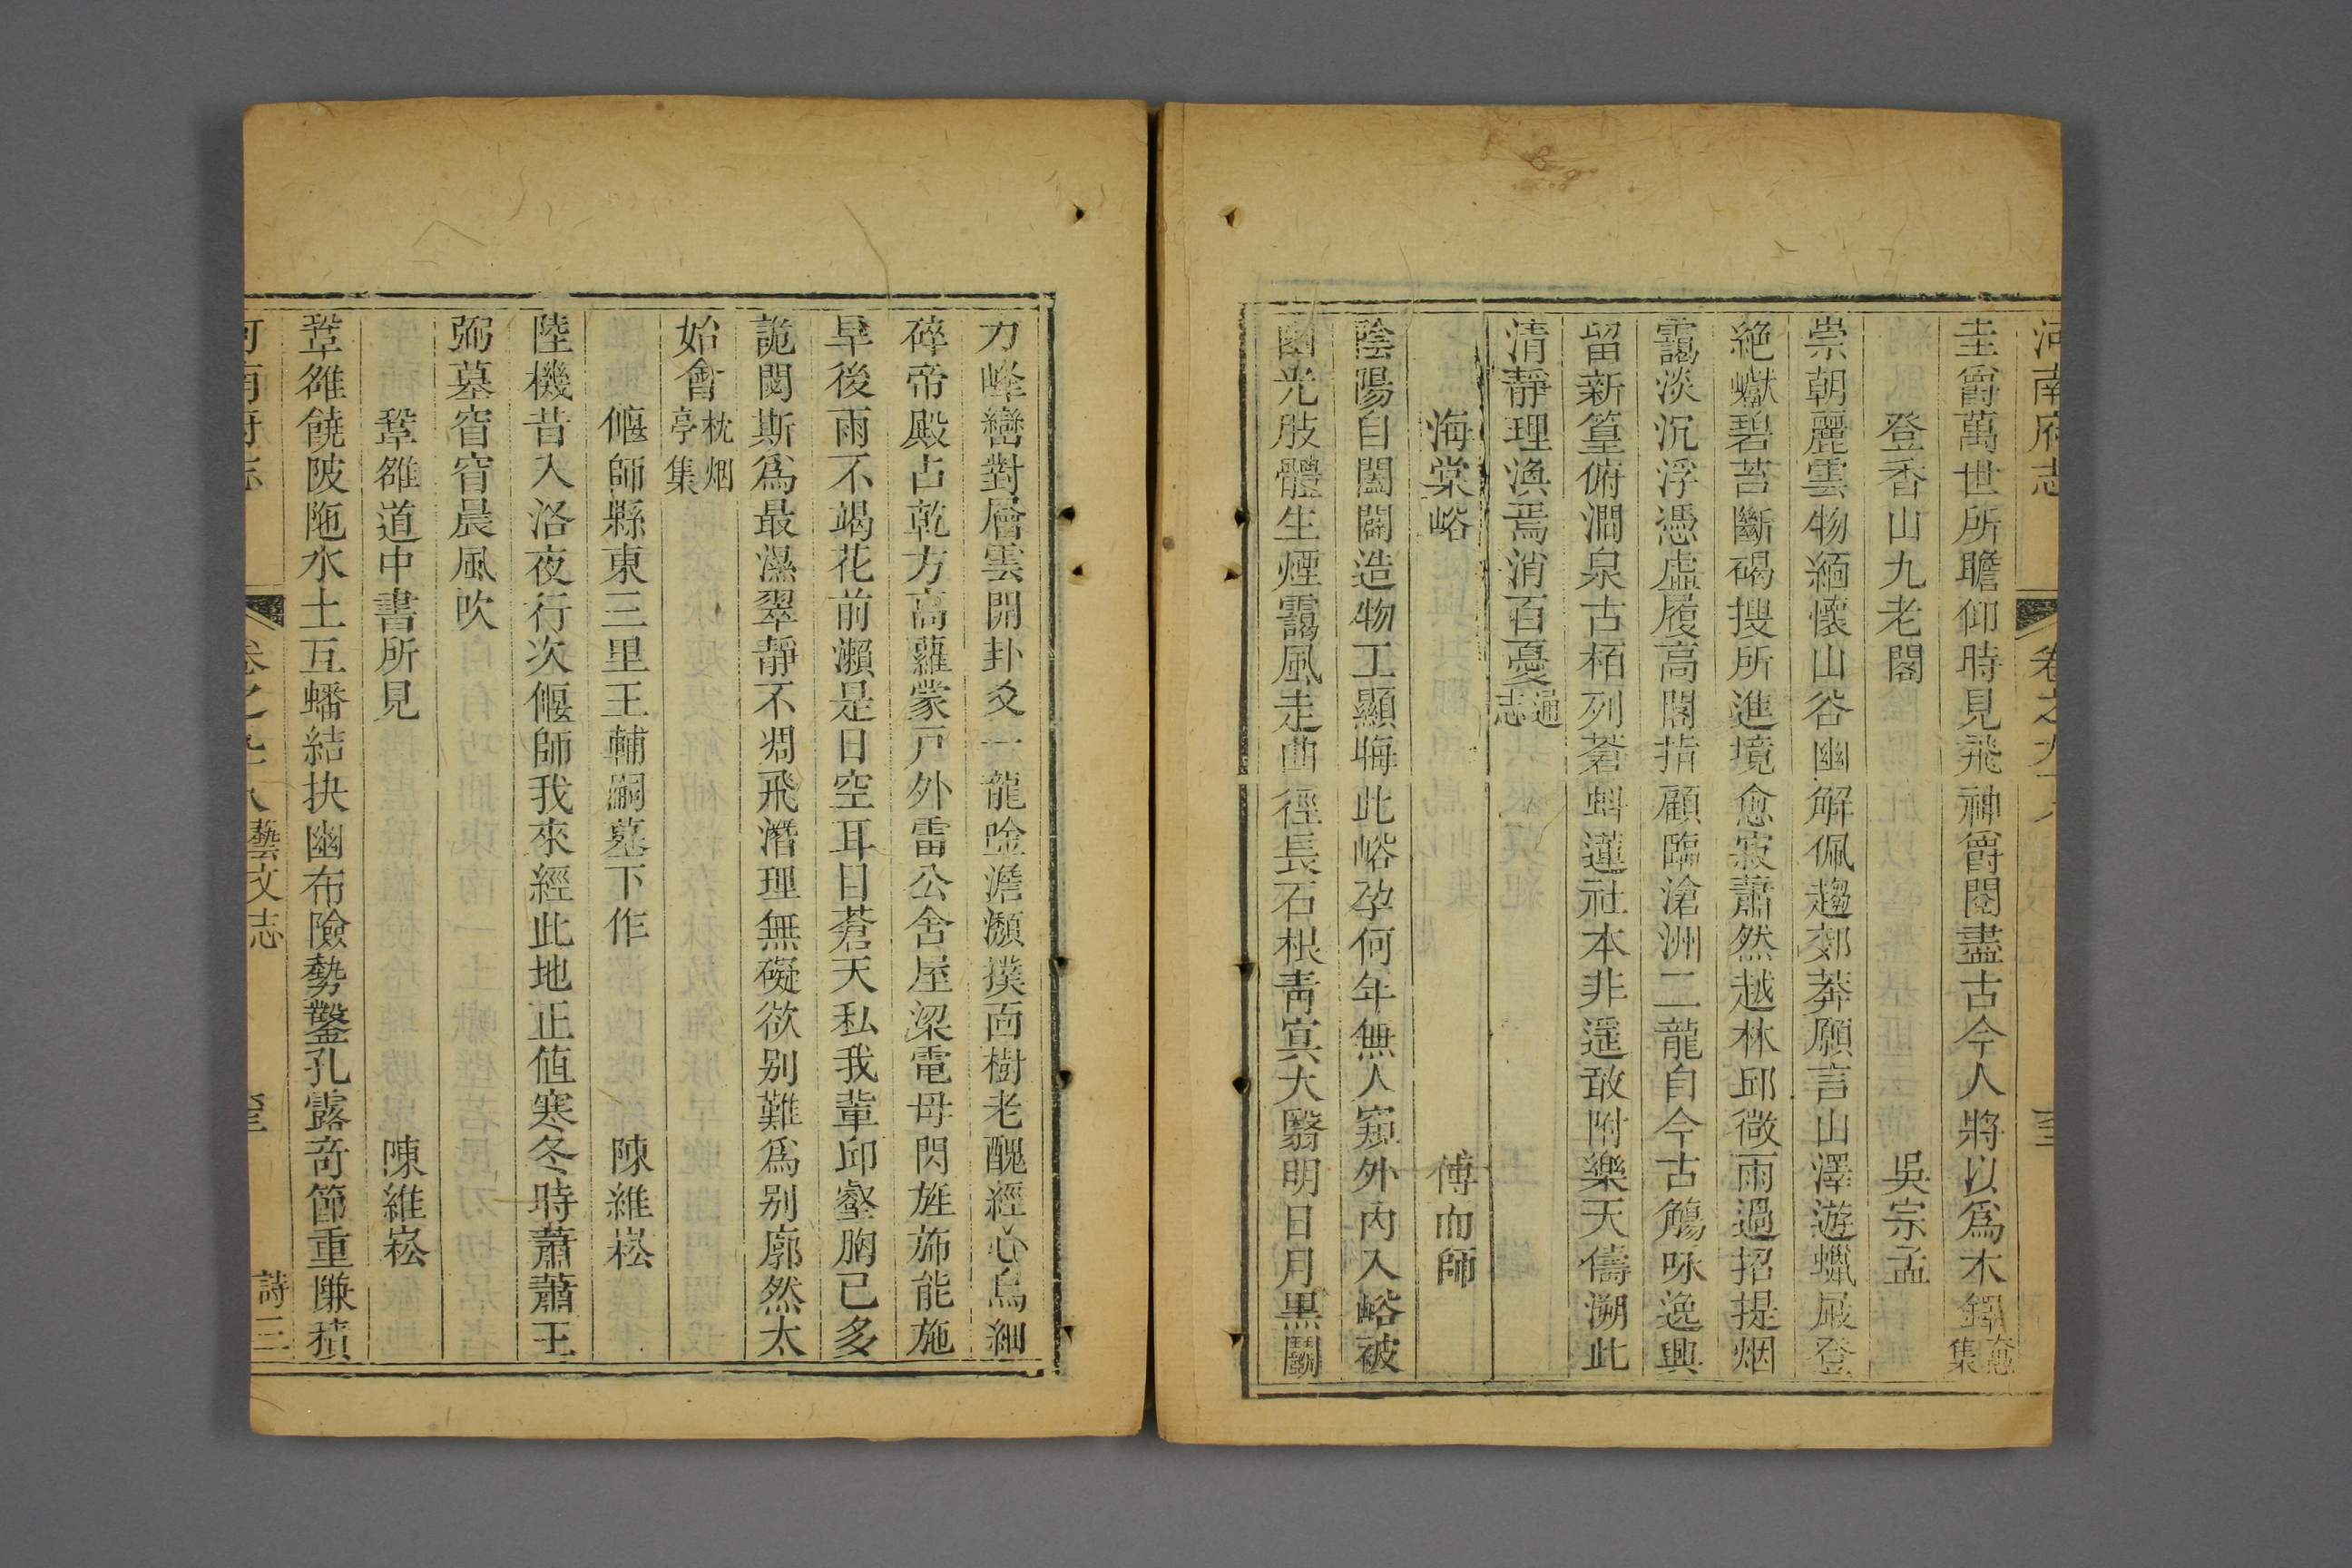 河南府志 卷之九十八
圭爵萬世所瞻仰時見飛神爵閱盡古今人將以為木鐸
集
登香山九老閣 吳宗孟
崇朝麗雲物緬懷山谷幽解佩趨郊莽願言山澤遊蠟屐登
絶巘碧苔斷碣搜所進境愈寂蕭然越林邱微雨過招提烟
靄淡沉浮憑虛履高閣指顧臨滄洲二龍自今古觴咏逸興
留新篁俯澗泉古栢列蒼蚪蓮社本非遥敢附樂天儔溯此
清靜理渙焉消百憂通志
海棠峪 傅而師
陰陽自闔闢造物工顯晦此峪孕何年無人窺外內入峪被
幽光肢體生煙靄風走曲徑長石根青寘大翳明日月黑鬬
力峰巒對層雲開卦爻一龍唫澹灝撲面樹老醜經心鳥細
碎帝殿占乾方高蘿蒙戸外雷公舍屋梁電母閃旌斾能施
旱後雨不竭花前瀨是日空耳目蒼天私我輩邱壑胸已多
詭閟斯爲最濕翠靜不凋飛潛理無礙欲别難爲别廓然太
始會枕烟亭集
偃師縣東三里王輔嗣墓下作 陳維崧
陸機昔入洛夜行次偃師我來經此地正值寒冬時蕭蕭王
弼墓窅窅晨風吹
鞏雒道中書所見 陳維崧
鞏雒饒陂陁水土互蟠結抉幽布險勢鑿孔露奇節重隒積
河南府志 卷之九十八藝文志 詩三